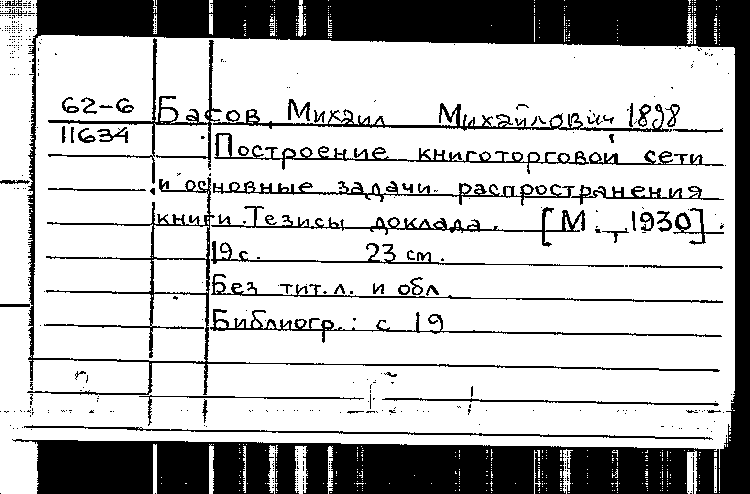 62-6 Басов, Михаил Михайлович 1898
11634
Построение книготорговой сети
и основные задачи распространения
книги. Тезисы доклада. [М., 1930].
19 с. 23 см.
Без тит. л. и обл.
Библиогр.: с 19